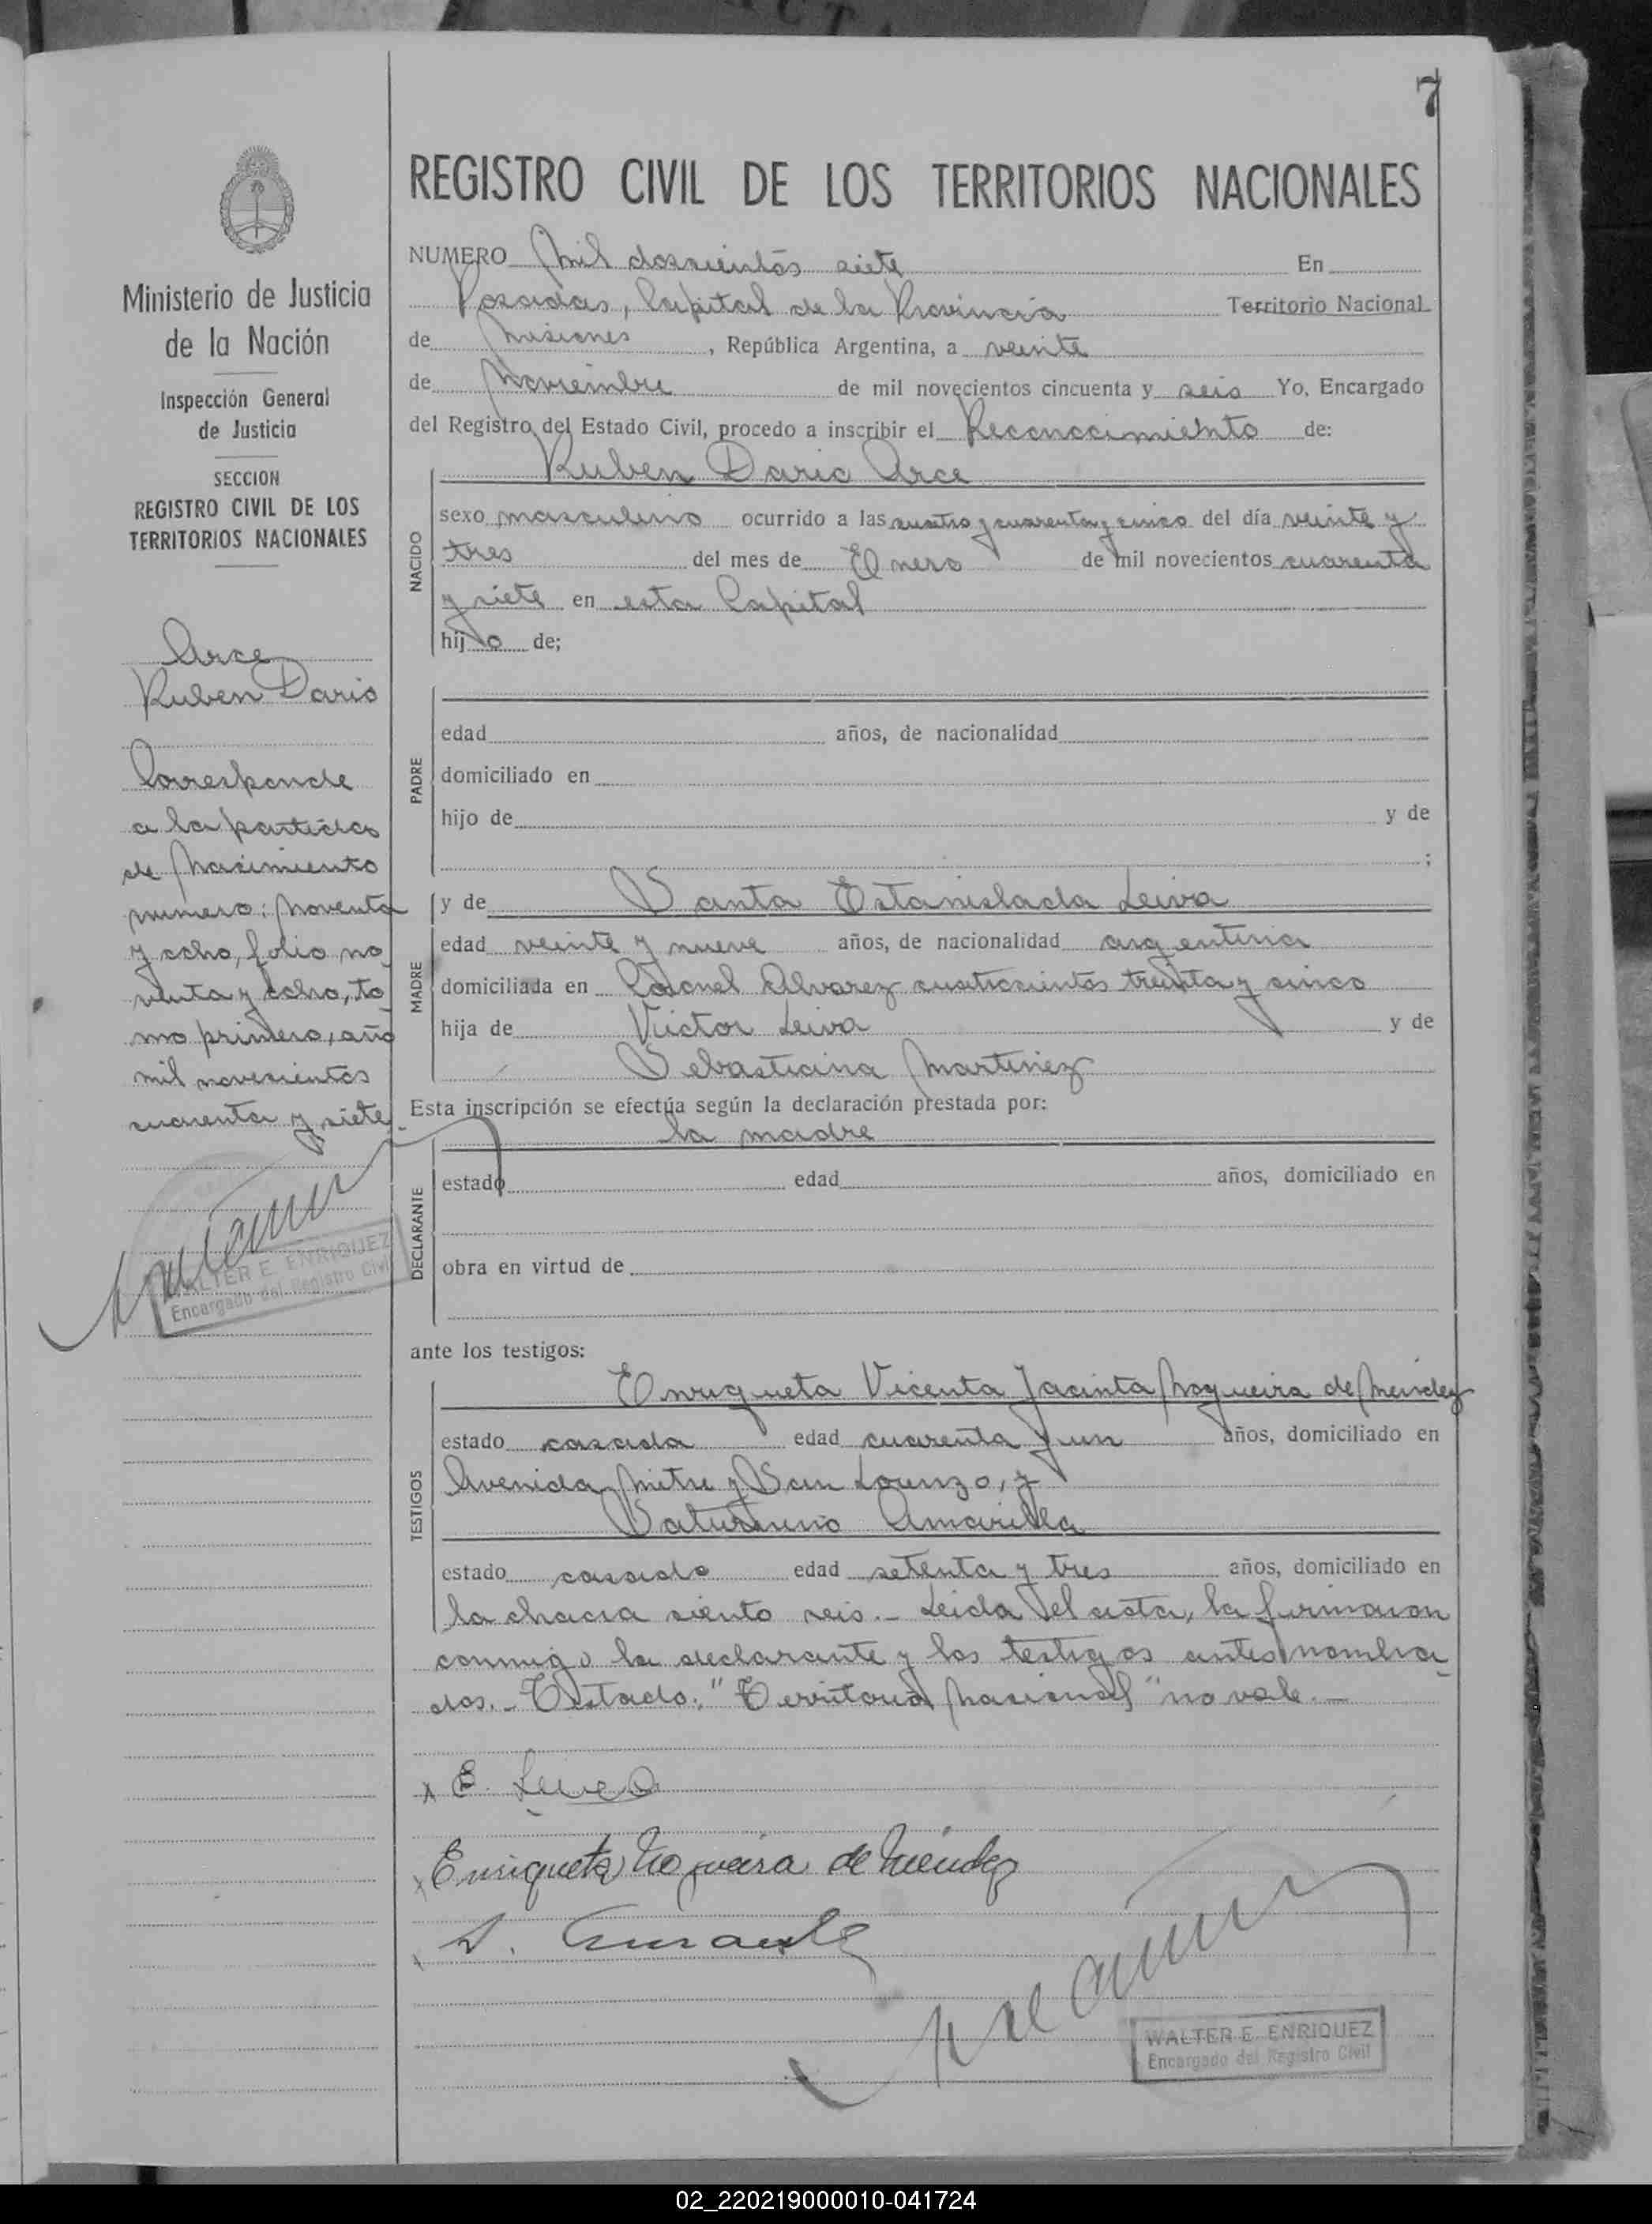 7
REGISTRO CIVIL DE LOS TERRITORIOS NACIONALES
Ministerio de Justicia
de la Nación
Inspección General
de Justicia
SECCION
REGISTRO CIVIL DE LOS
TERRITORIOS NACIONALES
Arce
Ruben Dario
Corresponde
a la partida
de Nacimiento
numero: Noventa
y ocho, folio no
venta y ocho, to-
mo primero, año
mil novecientos
cuarenta y siete.
WALTER E. ENRIQUEZ
Encargado del Registro Civil
NUMERO Mil doscientos siete En
Posadas, Capital de la Provincia Territorio Nacional
de Misiones, República Argentina, a veinte
de Noviembre de mil novecientos cincuenta y seis Yo, Encargado
del Registro del Estado Civil, procedo a inscribir el Reconocimiento de:
Ruben Dario Arce
NACIDO
sexo masculino ocurrido a las cuatro y cuarenta y cinco del día veinte y
tres del mes de Enero de mil novecientos cuarenta
y siete en esta Capital
hijo de;
PADRE
edad años, de nacionalidad
domiciliado en
hijo de y de
;
MADRE
y de Santa Estanislada Leiva
edad veinte y nueve años, de nacionalidad argentina
domiciliada en Coronel Alvarez cuatrocientos treinta y cinco
hija de Victor Leiva y de
Sebastiana Martinez
Esta inscripción se efectúa según la declaración prestada por:
la madre
DECLARANTE
estado edad años, domiciliado en
obra en virtud de
ante los testigos:
TESTIGOS
Enriqueta Vicenta Jacinta Nogueira de Mendez
estado casada edad cuarenta y un años, domiciliado en
Avenida Mitre y San Lorenzo, y
Saturnino Amarilla
estado casado edad setenta y tres años, domiciliado en
la chacra siento seis.- Leida el acta, la firmaron
conmigo la declarante y los testigos antes nombra-
dos.- Testado: "Territorio Nacional" no vale.-
x E. Leiva
x Enriqueta Nogueira de Méndez
WALTER E. ENRIQUEZ
Encargado del Registro Civil
02_220219000010-041724